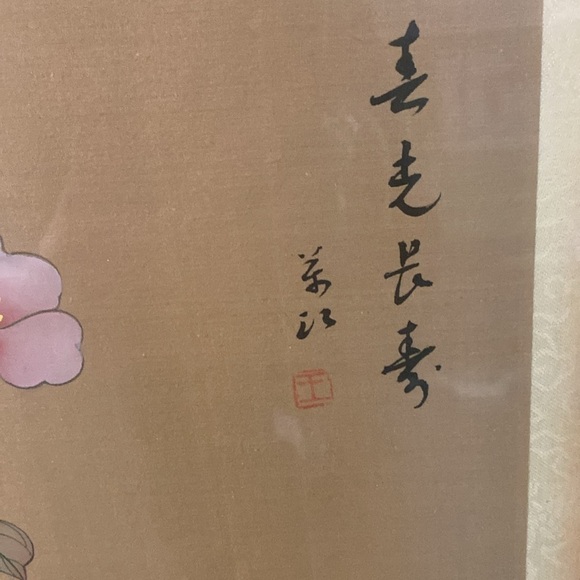 春光長壽
萬江
王